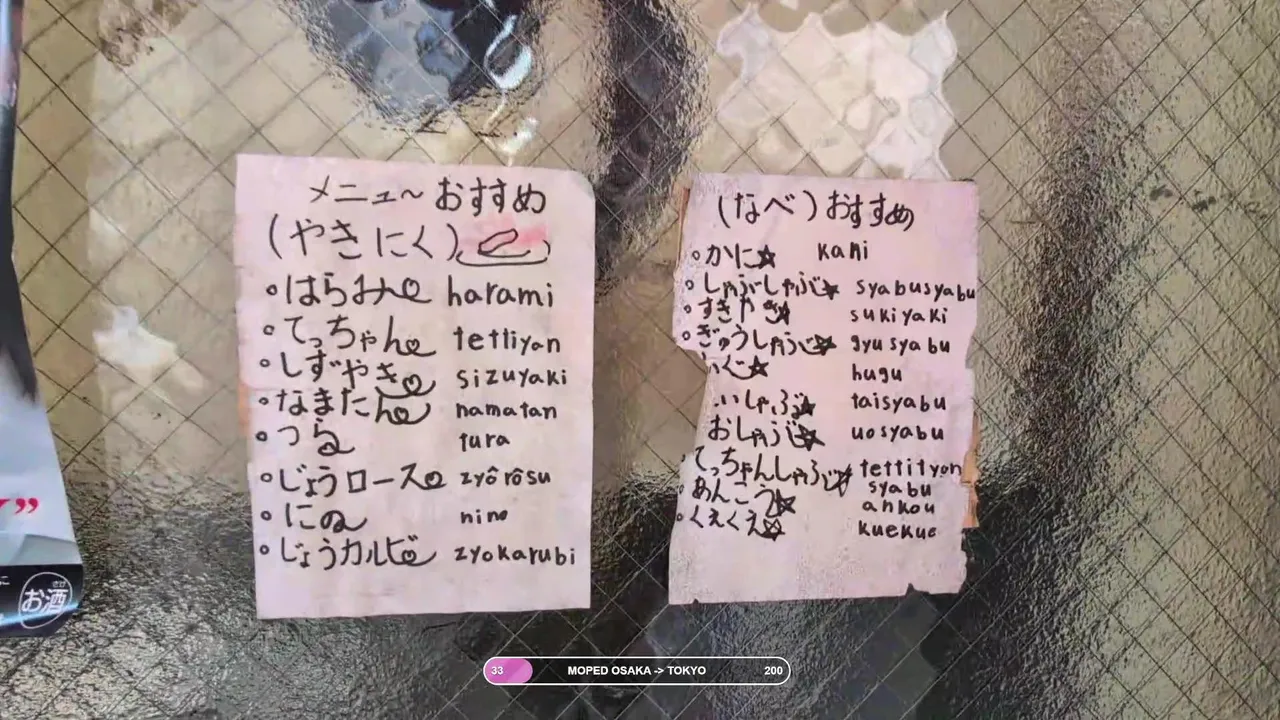 メニュー おすすめ
(やきにく)
はらみ harami
てっちゃん tettiyan
しずやき sizuyaki
なまたん namatan
つら tura
じょうロース zyôrôsu
にの nino
じょうカルビ zyokarubi
(なべ)おすすめ
かに kani
しゃぶしゃぶ syabusyabu
すきやき sukiyaki
ぎゅうしゃぶ gyusyabu
ぐ hugu
いしゃぶ taisyabu
おしゃぶ uosyabu
てっちゃんしゃぶ tettityan
syabu
あんこう ankou
くえくえ kuekue
”
に
さけ
お酒
33 MOPED OSAKA -> TOKYO 200